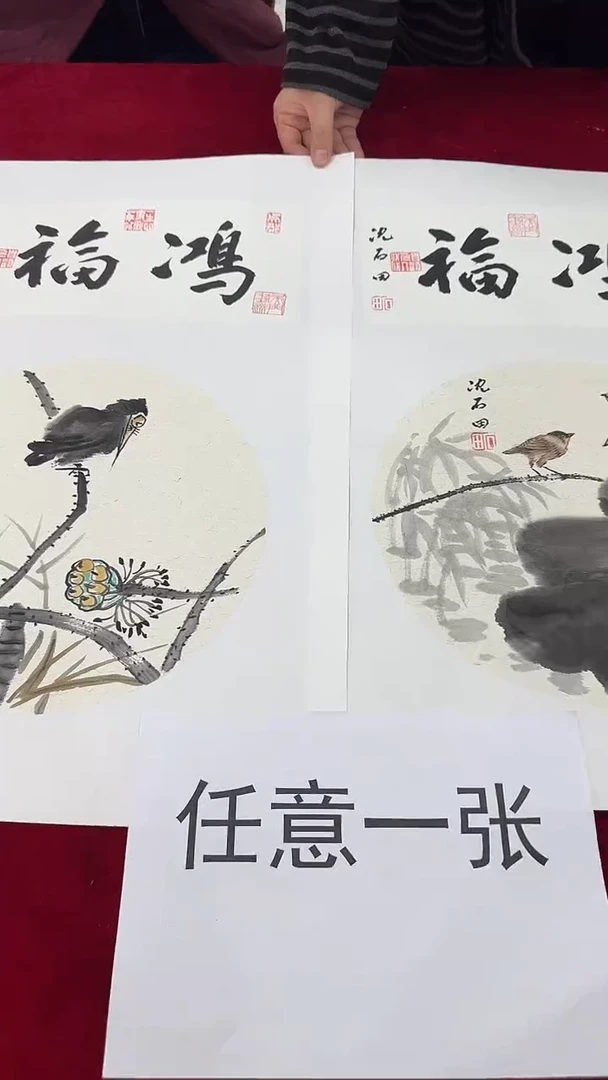 鸿福
鸿福
沈石田
沈石田
任意一张